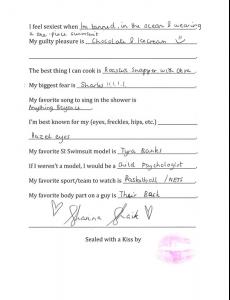 I feel sexiest when I'm tanned, in the ocean & wearing
a one piece swimsuit
My guilty pleasure is Chocolate & Icecream
The best thing I can cook is Roasted Snapper with
My biggest fear is Sharks !!!!!
My favorite song to sing in the shower is
Anything Beyonce
I'm best known for my (eyes, freckles, hips, etc.)
Hazel eyes
My favorite SI Swimsuit model is Tyra Banks
If I weren't a model, I would be a Child Psychologist
My favorite sport/team to watch is Basketball / NETS
My favorite body part on a guy is Their Back
Shanina Shaik
Sealed with a Kiss by